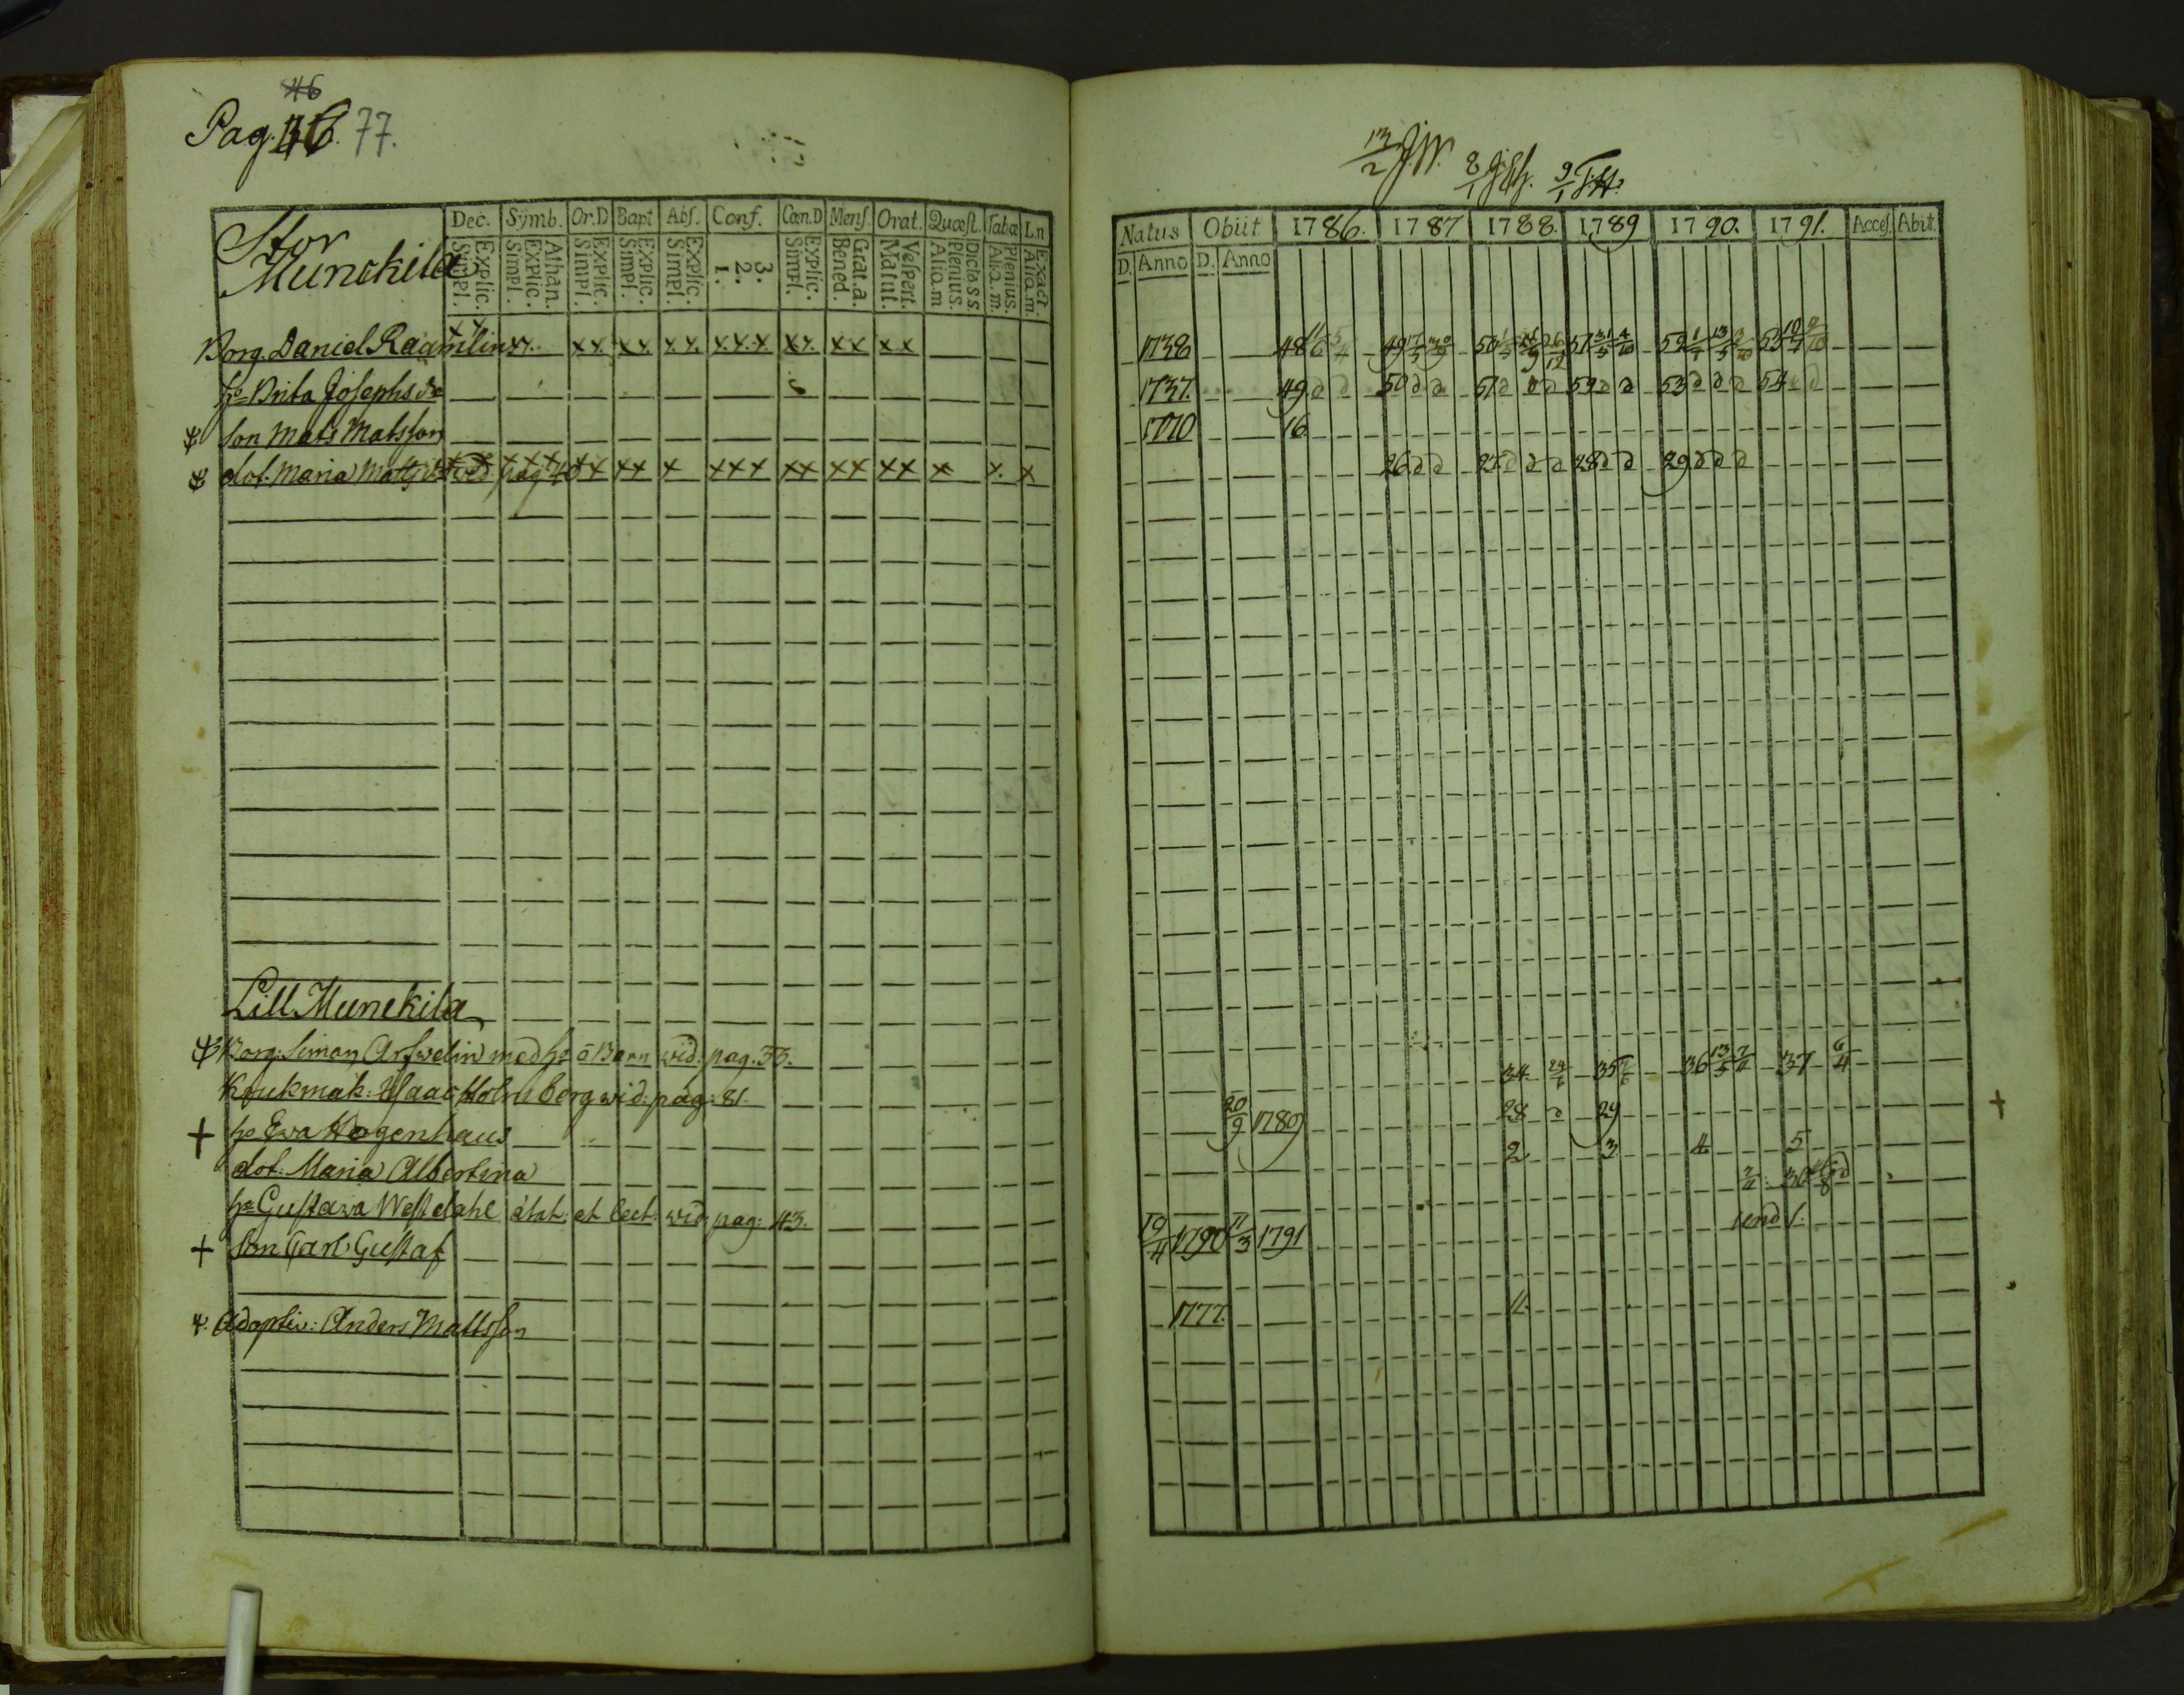 46
Pag. 77.
Stor
Munckila
Dec. Symb. Or.D Bapt Abs. Conf. Cœn.D Mens. Orat. Quæst. Tabæ Ln
Explic. Simpl. Athan. Explic. Simpl. Explic. Simpl. Explic. Simpl. Explic. Simpl. 3. 2. 1. Explic. Simpl. Grat.a. Bened. Vespert. Matut. Dicta s.s. Plenius. Aliq.m Plenius. Aliq.m. Exact. Aliq.m.
Natus Obiit 1786. 1787 1788. 1789 1790. 1791. Acces. Abit.
D. Anno D. Anno
Borg. Daniel Raamelin xx xx. xx xx. xx. x.x.x xx. xx xx 1738 48 49 50 51 52 53
h:o Brita Josephs dr 1737. 49 50 51 52 53 54
Son Mats Matsson 1770 16
dot. Maria Matts dr vid pag 40 xx xx x xxx xx xx xx x x. x 26 27 28 29
Lill Munckila
Borg: Simon Arfwelin med h:o o Barn vid: pag. 33.
Krukmak: Isaac Holmberg vid: pag: 81. 34 35 36 37
h:o Eva Hagenhaus 20/9 1789 28 29
dot: Maria Albertina 2 3 4 5
h:o Gustava Westdahl ætat: et lect: vid: pag: 43. 36
Son Carl Gustaf 19/4 1790 11/3 1791 und 1.
Adoptiv: Anders Mattsson 1777. 11.